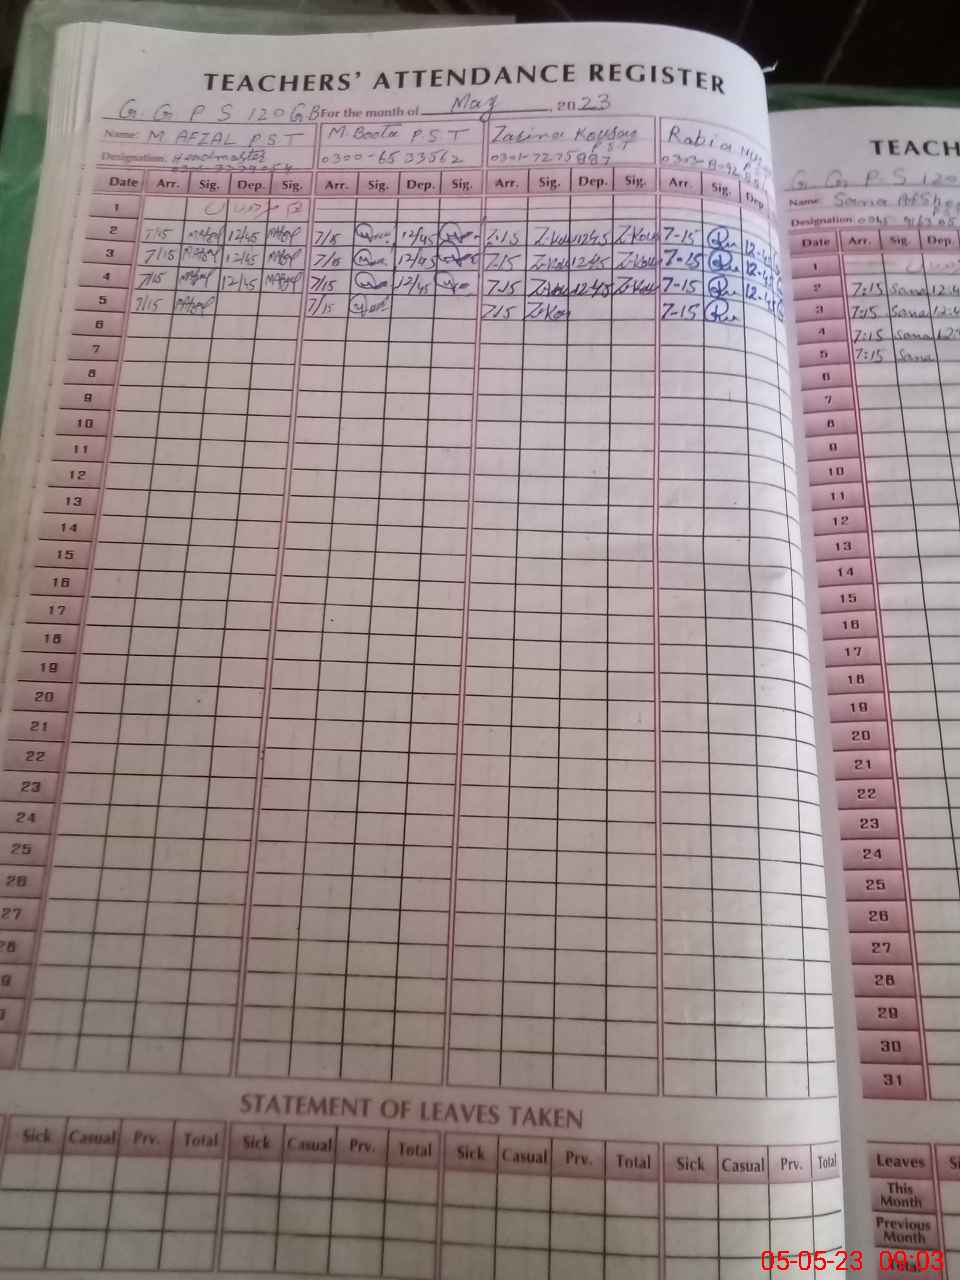 TEACHERS' ATTENDANCE REGISTER
G. G P S 120 GB For the month of May, 2023
Name: M. AFZAL P.S.T M. Boota P.S.T Zarina Kousar P.S.T Rabia
Designation. Headmaster 0300-6533562 0301-7275997
Date Arr. Sig. Dep. Sig. Arr. Sig. Dep. Sig. Arr. Sig. Dep. Sig. Arr. Sig. Dep
1
2 7/15 MAfzal 12/45 MAfzal 7/15 12/45 7.15 Z.Kou 1245 Z.Kou 7-15 12-4
3 7/15 MAfzal 12/45 MAfzal 7/15 12/45 7.15 Z.Kou 1245 Z.Kou 7-15 12-4
4 7/15 MAfzal 12/45 MAfzal 7/15 12/45 7.15 Z.Kou 1245 Z.Kou 7-15 12-4
5 7/15 MAfzal 7/15 7.15 Z.Kou 7-15
6
7
8
9
10
11
12
13
14
15
16
17
18
19
20
21
22
23
24
25
26
27
28
9
STATEMENT OF LEAVES TAKEN
Sick Casual Prv. Total Sick Casual Prv. Total Sick Casual Prv. Total Sick Casual Prv. Total
TEACH
G. G. P S 120
Name: Sana
Designation
Date Arr. Sig. Dep.
1
2 7:15 Sana 12:4
3 7:15 Sana 12:4
4 7:15 Sana 12:
5 7:15 Sana
6
7
8
9
10
11
12
13
14
15
16
17
18
19
20
21
22
23
24
25
26
27
28
29
30
31
Leaves Si
This Month
Previous Month
Total
05-05-23 09:03